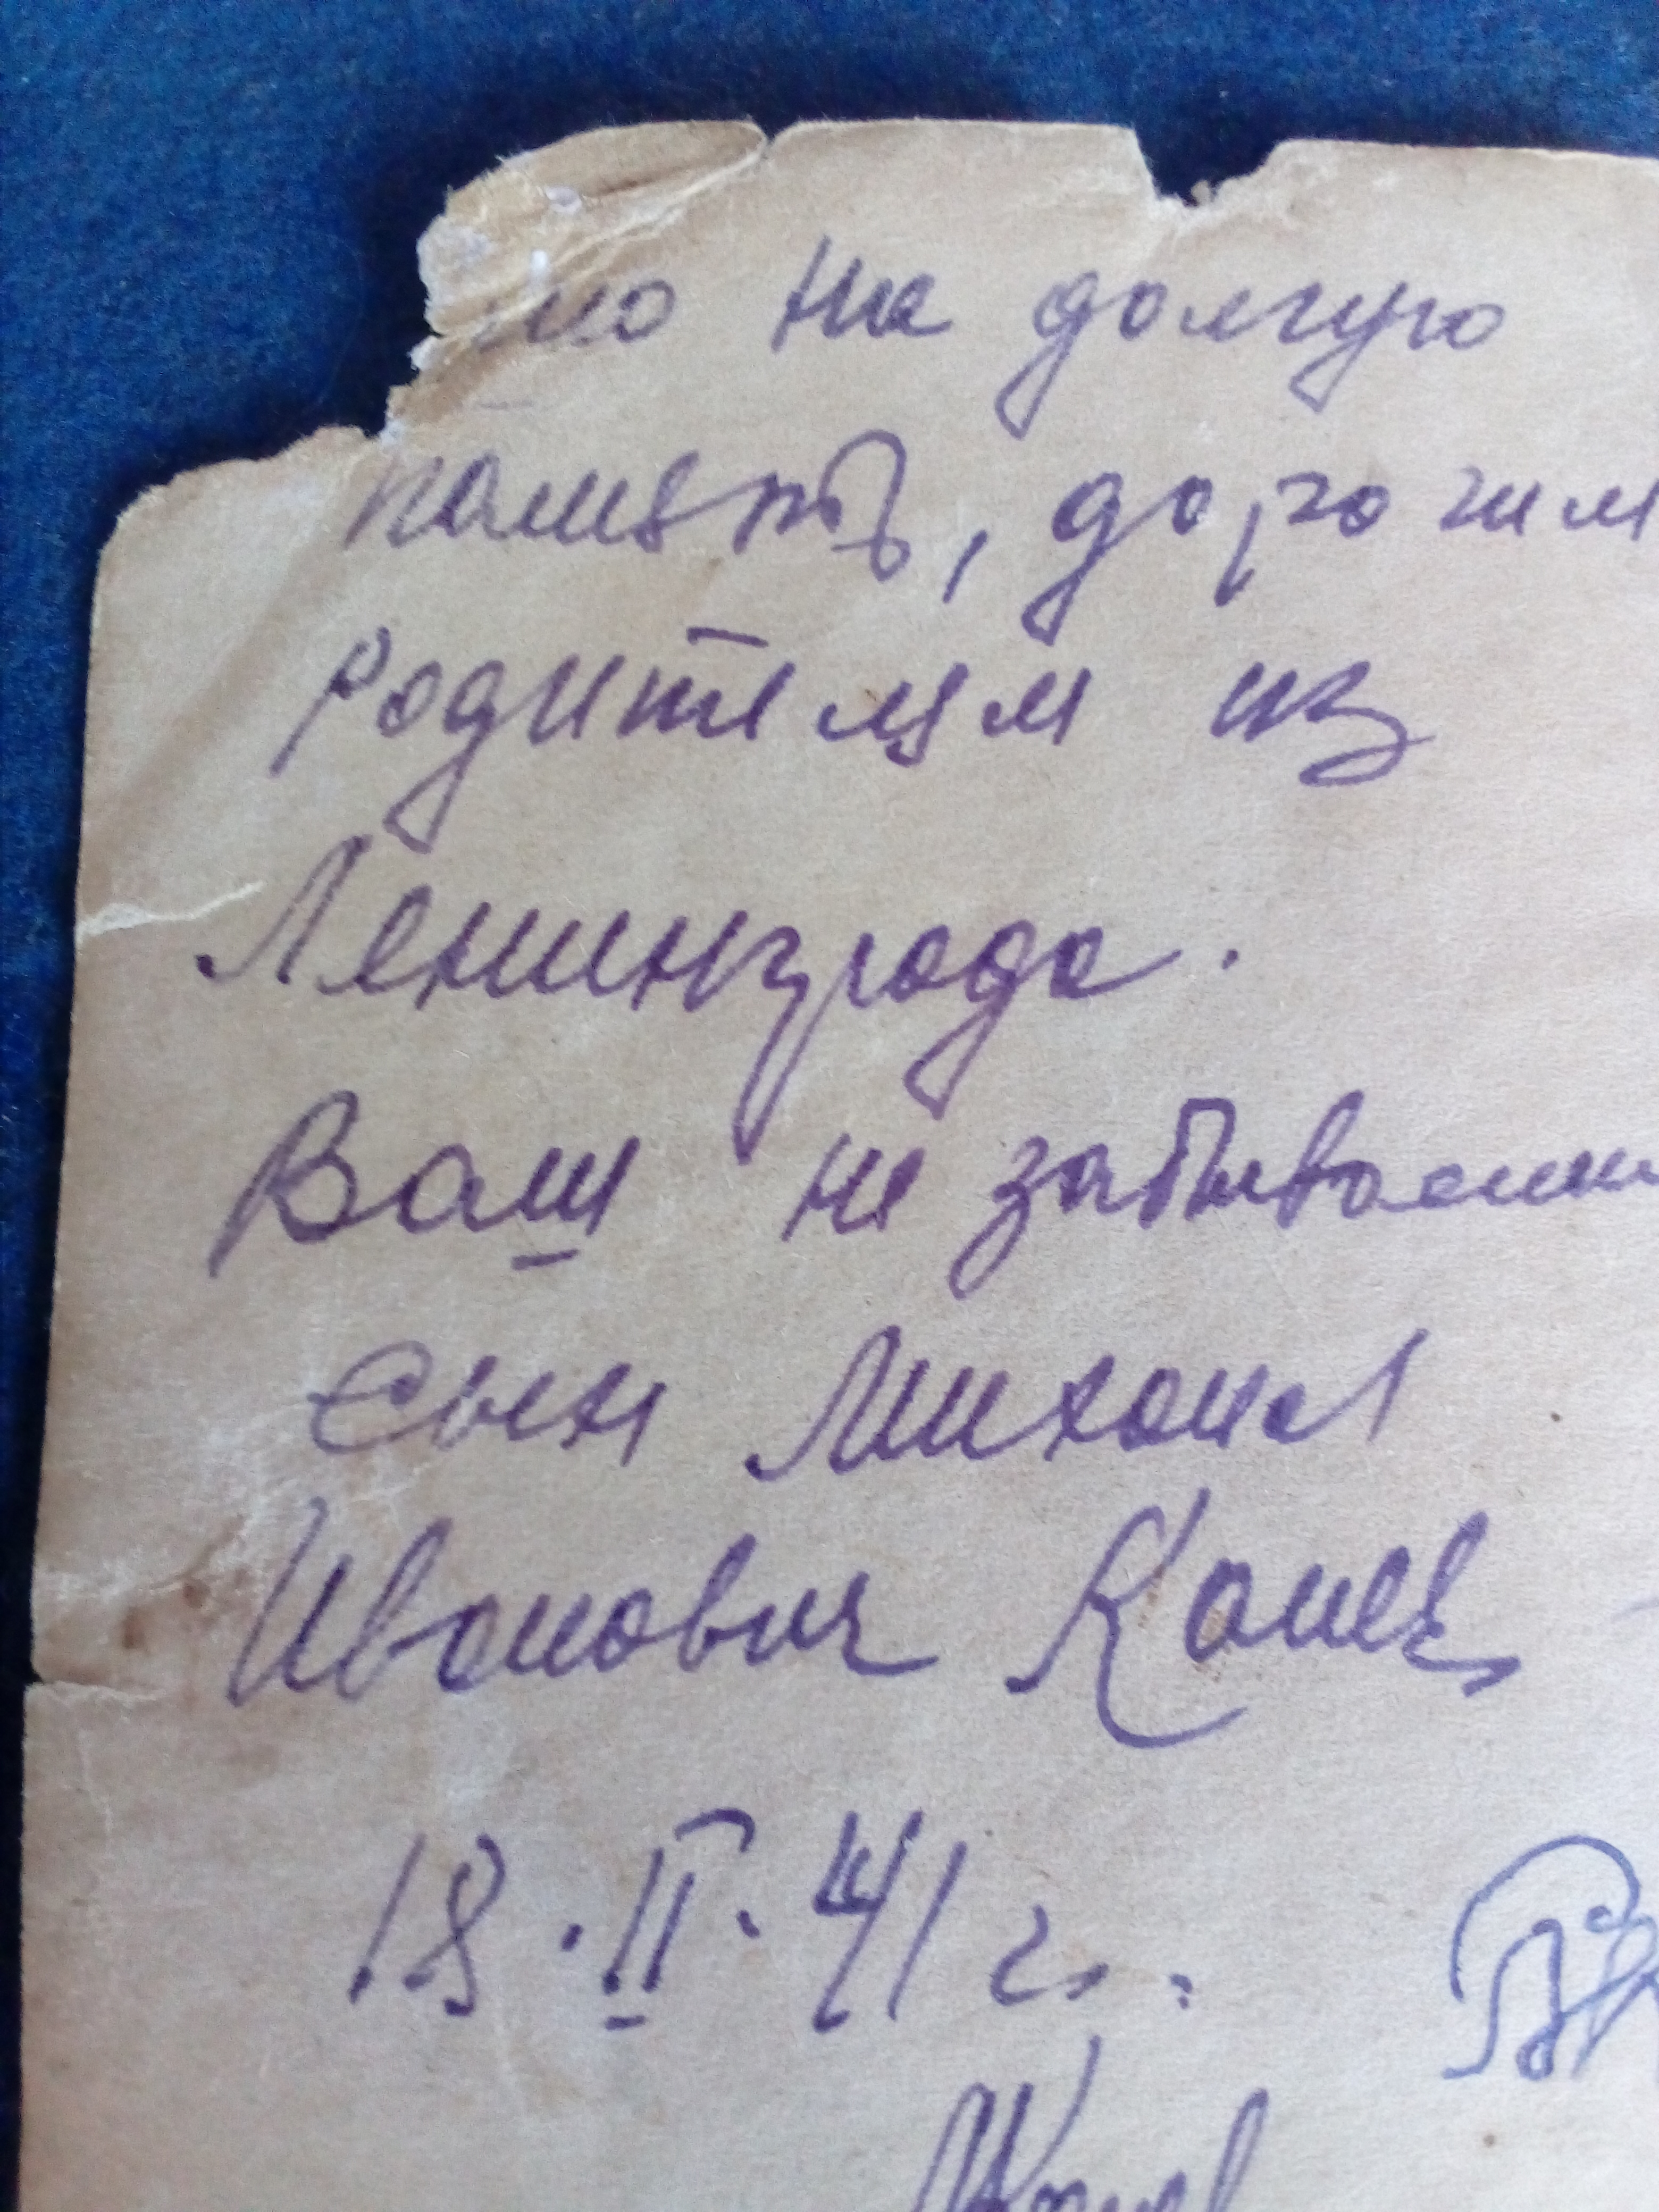 на долгую
память, дорогим
родителям из
Ленинграда.
Ваш не забываемы
сын Михаил
Иванович Кашев
18.II.41 г.